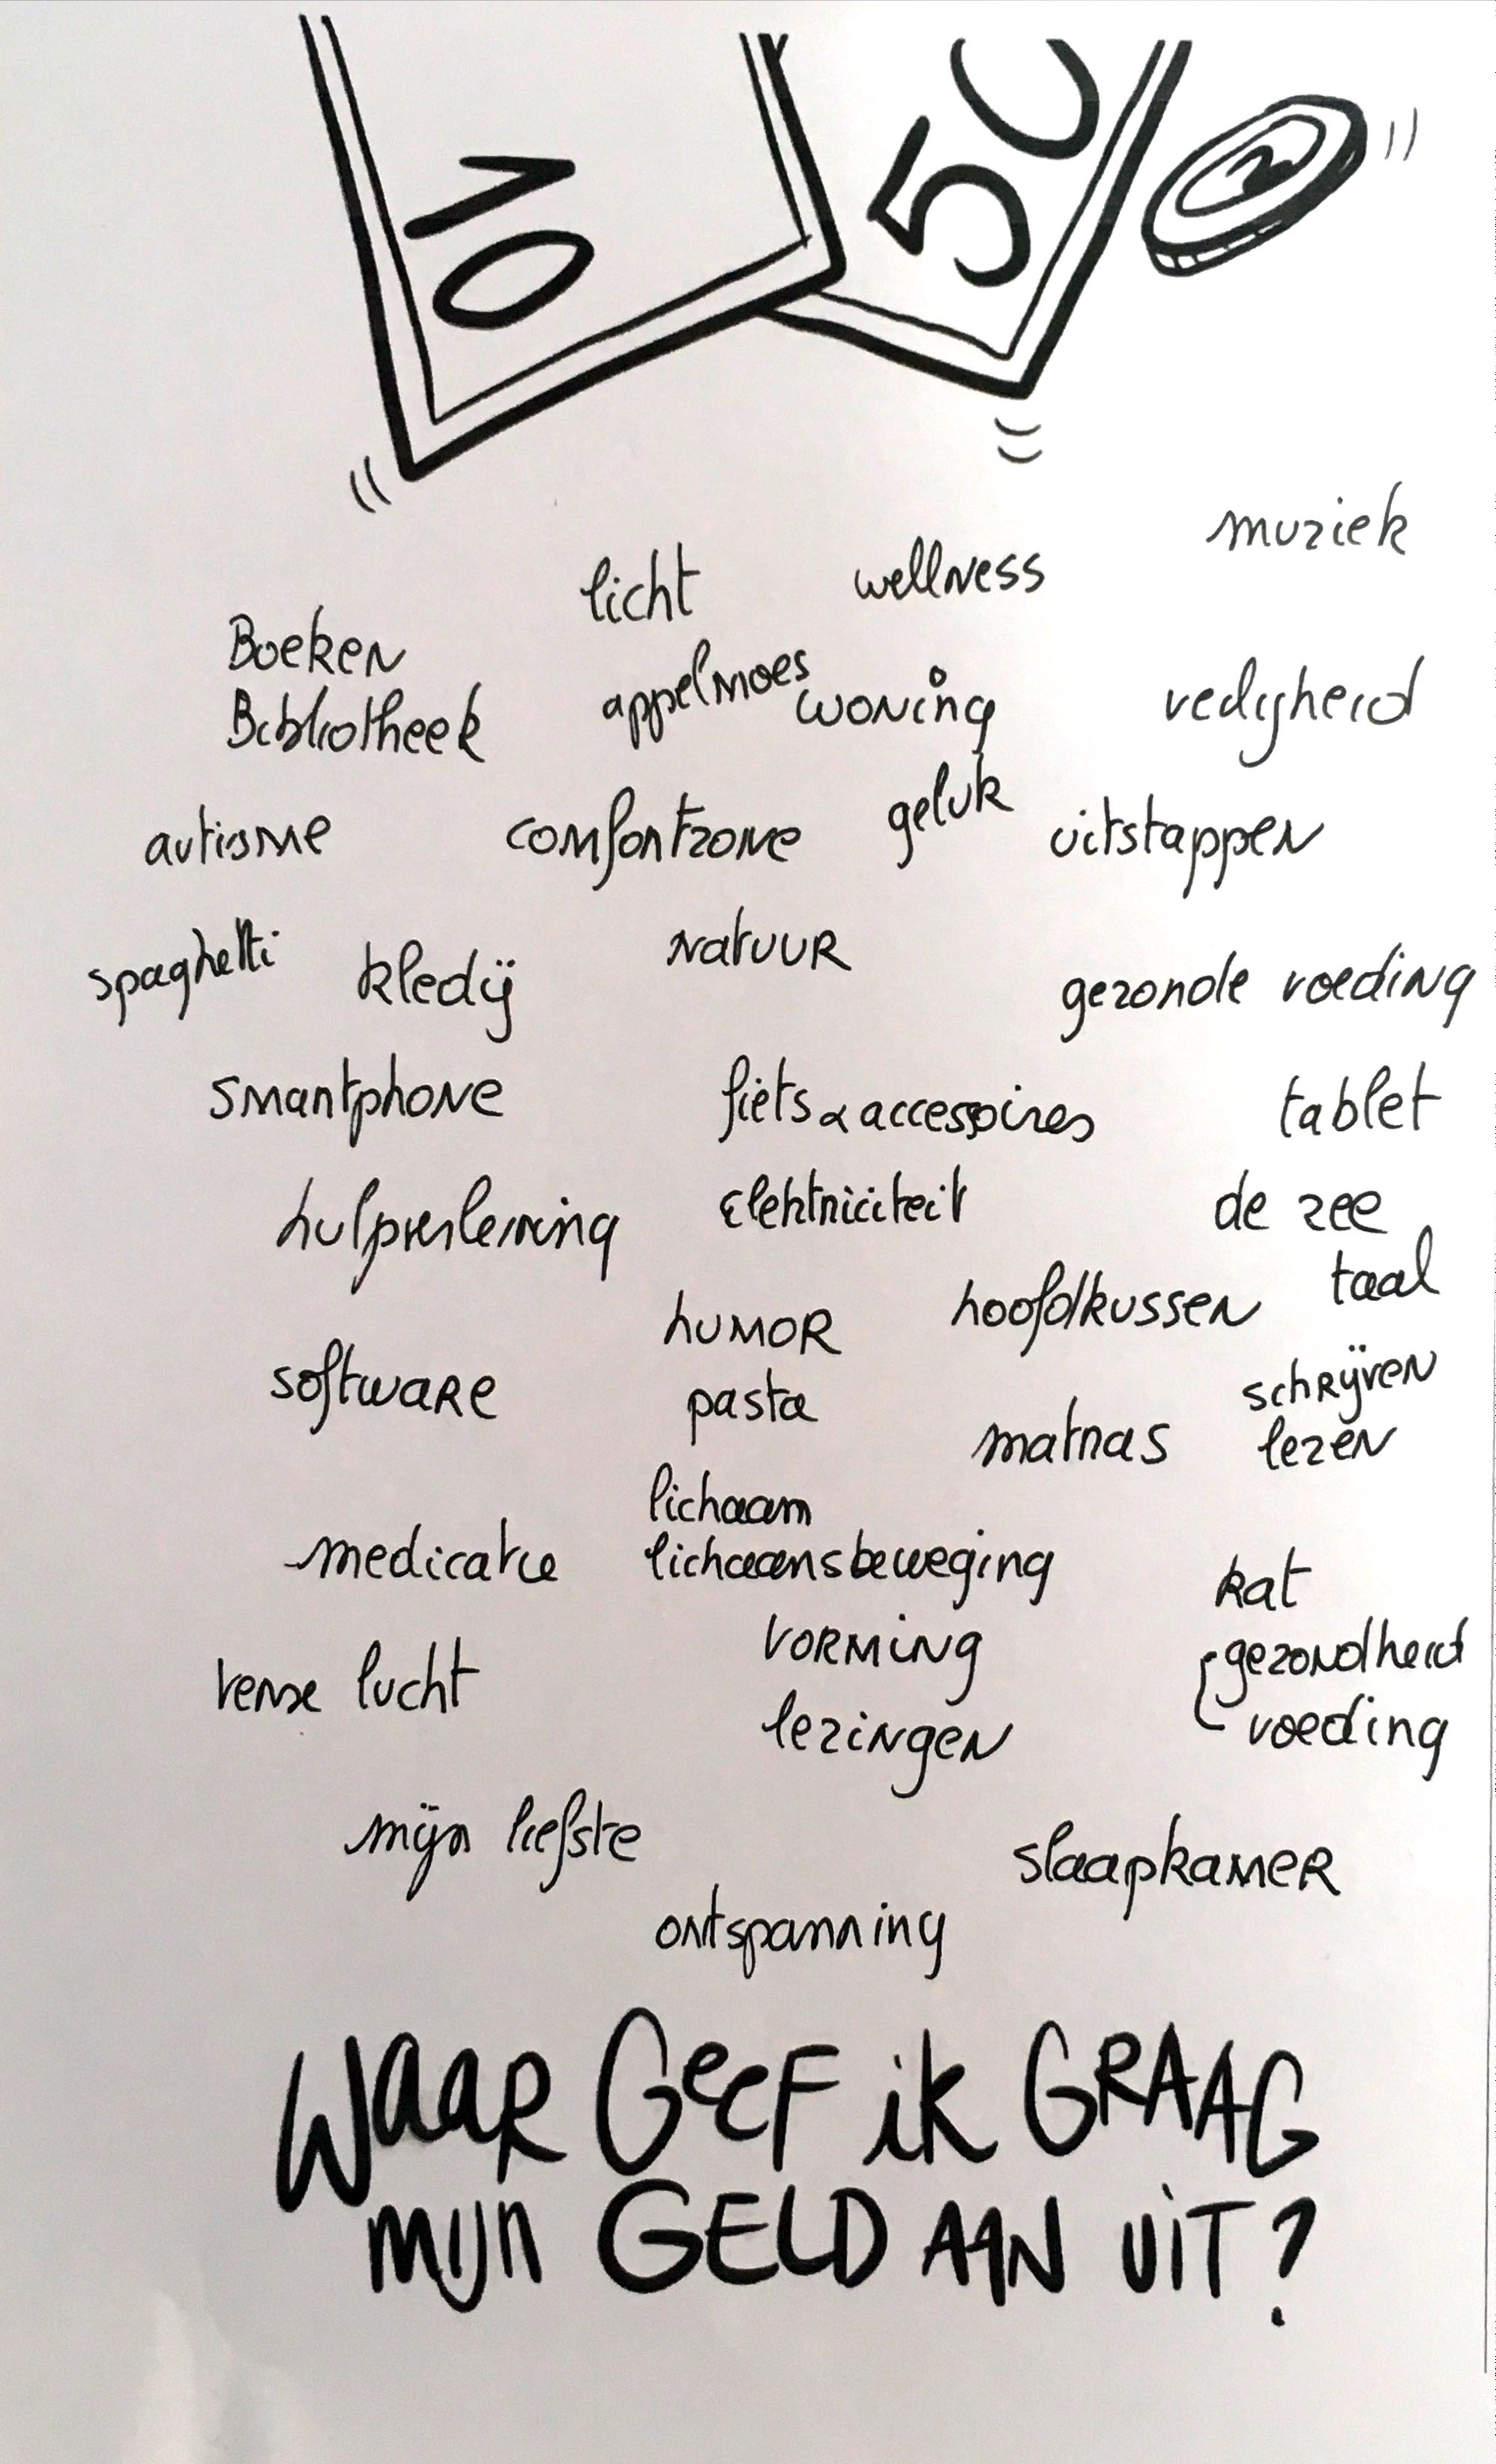 10
50
2
muziek
licht
wellness
Boeken
appelmoes
woning
veiligheid
Bibliotheek
autisme
comfortzone
geluk
uitstappen
spaghetti
kledij
natuur
gezonde voeding
smartphone
fiets & accessoires
tablet
hulpverlening
Elektriciteit
de zee
taal
humor
hoofdkussen
software
pasta
schrijven
matras
lezen
lichaam
medicatie
lichaamsbeweging
kat
vorming
gezondheid
verse lucht
lezingen
voeding
mijn liefste
slaapkamer
ontspanning
WAAR GEEF iK GRAAG
MIJN GELD AAN UiT?